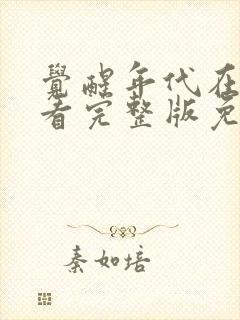 覺醒年代在
看完整版免
秦如培